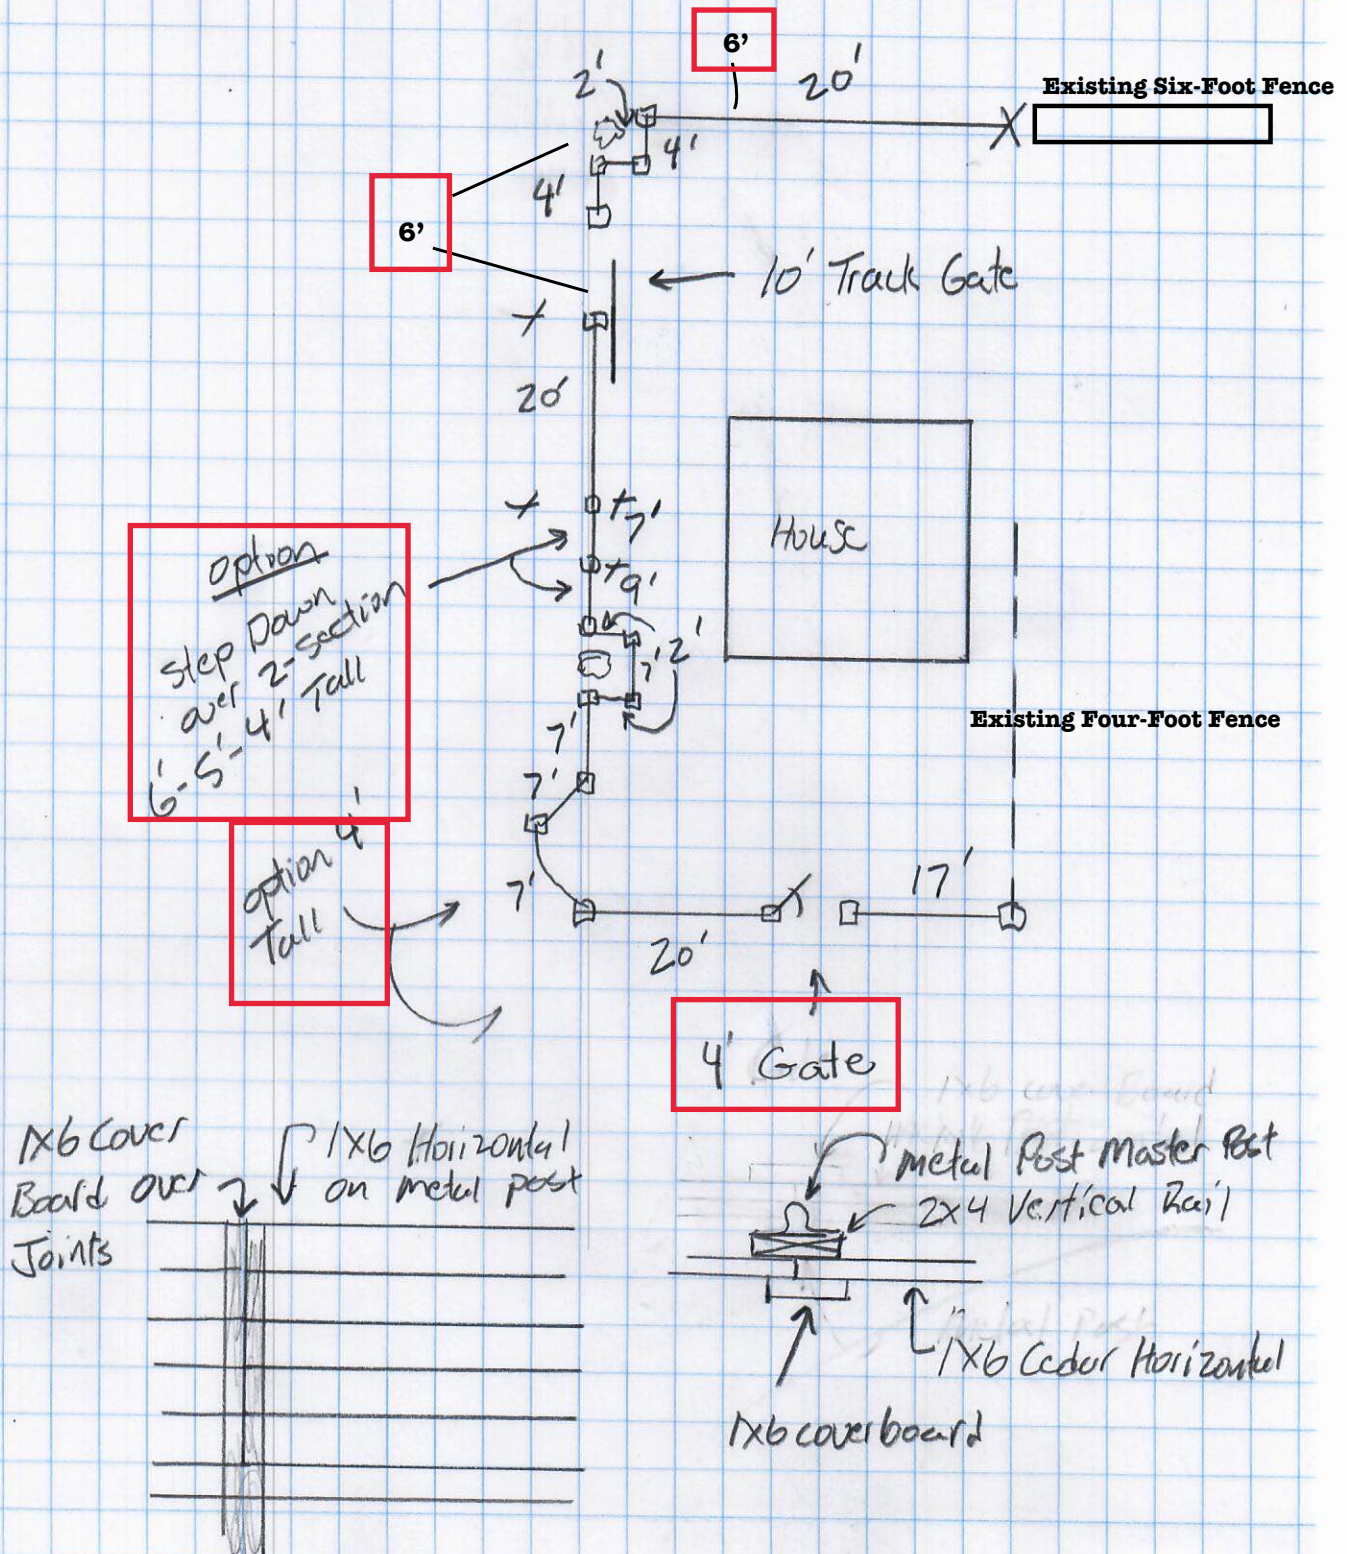 6’
20'
2'
Existing Six-Foot Fence
4'
4'
6’
10' Track Gate
20'
7'
House
option
Step Down
over 2-section
6'-5'-4' Tall
9'
2'
7'
7'
Existing Four-Foot Fence
7'
option 4'
Tall
7'
17'
20'
4' Gate
1x6 Cover
Board over
Joints
1x6 Horizontal
on metal post
metal Post Master Post
2x4 Vertical Rail
1x6 Cedar Horizontal
1x6 coverboard